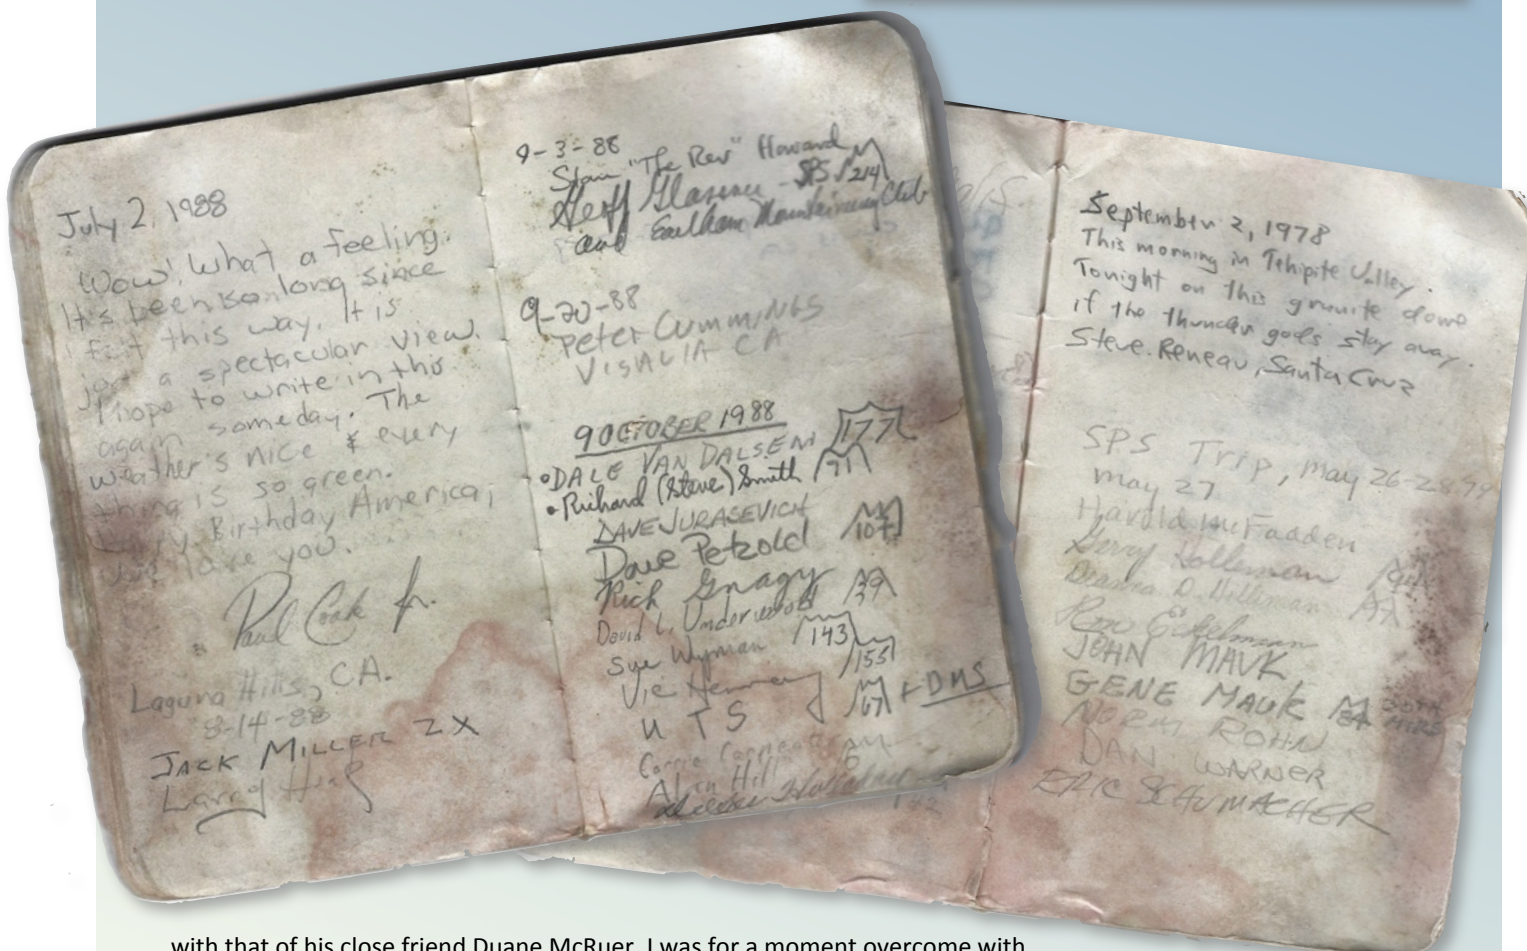 July 2, 1988
Wow! What a feeling.
It's been so long since
I felt this way. It is
just a spectacular view.
I hope to write in this
again someday. The
weather's nice & every
thing is so green.
Happy Birthday America,
we love you.
Paul Cook Jr.
Laguna Hills, CA.
8-14-88
JACK MILLER 2X
Larry
9-3-88
Stan "The Rev" Howard
Geoff Glassner - SPS 214
and Earlham Mountaineering Club
9-20-88
Peter Cummings
VISALIA CA
9 OCTOBER 1988
• DALE VAN DALSEM 177
• Richard (Steve) Smith 71
DAVE JURASEVICH
Dave Petzold 107
Rich Gnagy
David L. Underwood 39
Sue Wyman 143
Vic Henney 155
UTS 67 + DMS
Alan Hill
September 2, 1978
This morning in Tehipite Valley.
Tonight on this granite dome
if the thunder gods stay away.
Steve Reneau, Santa Cruz
SPS Trip, May 26-28, 79
May 27
Harold McFadden
Gerry Holleman
Deanna D. Holleman
Ron Eckelmann
JOHN MAUK
GENE MAUK
NORM ROHN
DAN WARNER
ERIC SCHUMACHER
with that of his close friend Duane McRuer, I was for a moment overcome with